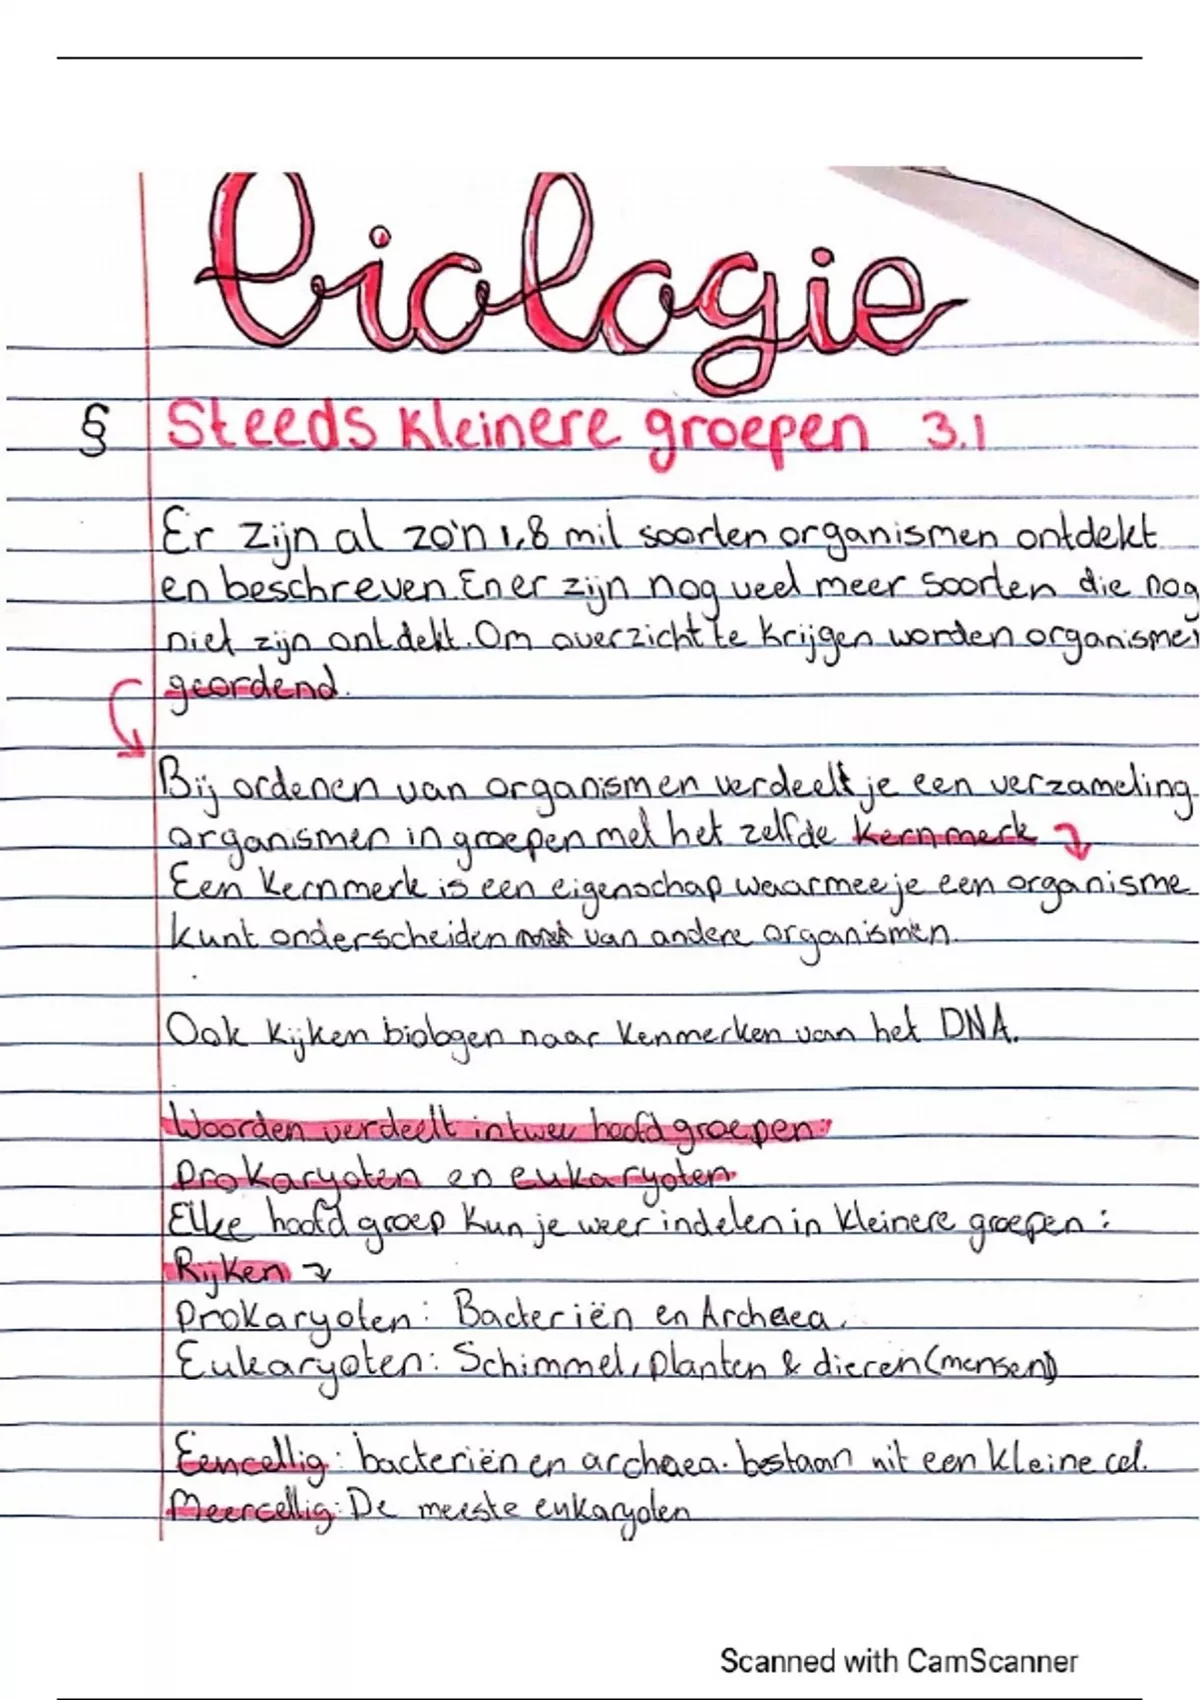 biologie
§ Steeds kleinere groepen 3.1
Er zijn al zo'n 1,8 mil soorten organismen ontdekt
en beschreven. En er zijn nog veel meer soorten die nog
niet zijn ontdekt. Om overzicht te krijgen worden organismen
geordend.
Bij ordenen van organismen verdeelt je een verzameling
organismen in groepen met het zelfde kernmerk
Een kernmerk is een eigenschap waarmee je een organisme
kunt onderscheiden van andere organismen.
Ook kijken biologen naar kenmerken van het DNA.
Woorden verdeelt in twee hoofd groepen:
prokaryoten en eukaryoten
Elke hoofd groep kun je weer indelen in kleinere groepen:
Rijken
prokaryoten: Bacteriën en Archaea.
Eukaryoten: Schimmel, planten & dieren (mensen)
Eencellig: bacteriën en archaea. bestaan uit een kleine cel.
Meercellig: De meeste eukaryoten
Scanned with CamScanner